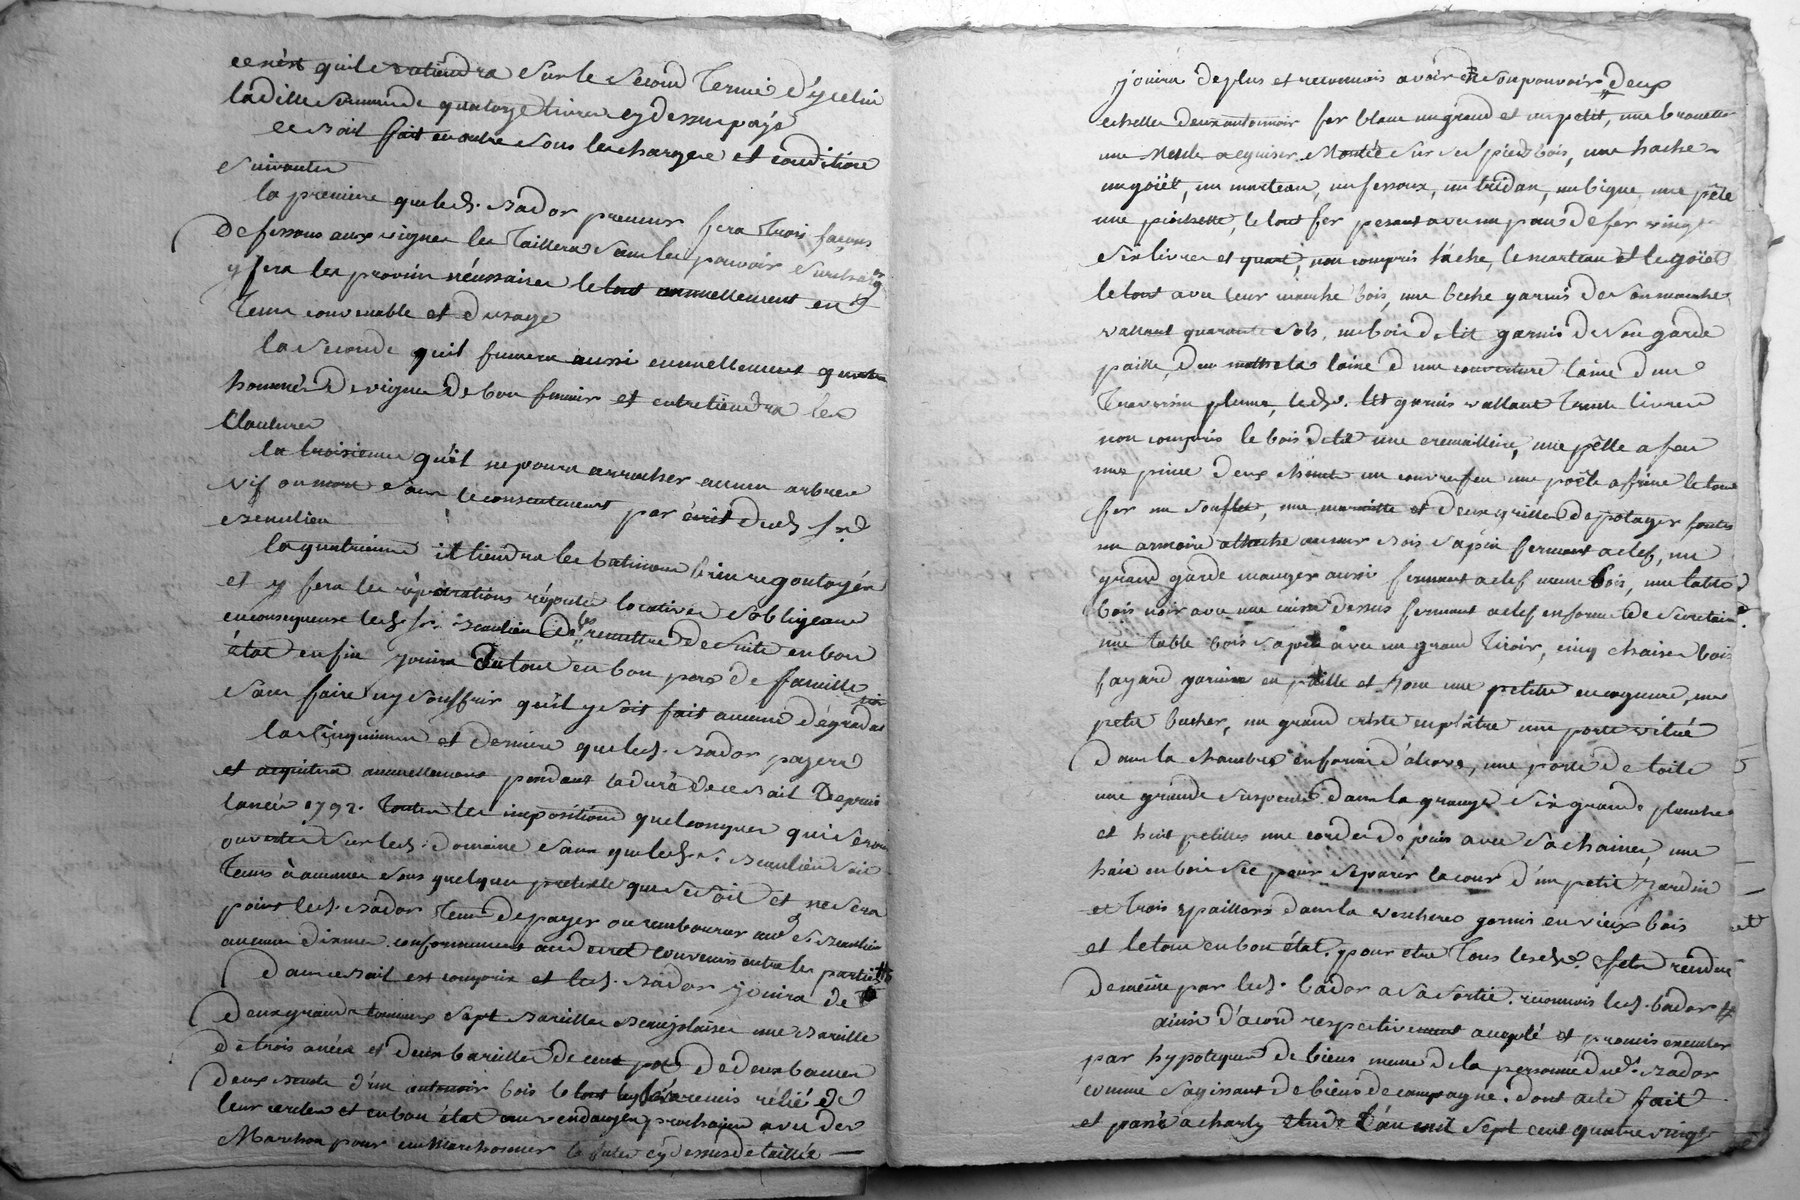 ce n'est qu'il retiendra sur le second terme d'ycelui
ladille somme de quatorze livres cy dessus payé
ce bail fait en outre sous les charges et conditions
suivantes
la premiere que led. Bador preneur fera trois façons
de fessous aux vignes les taillera sans les pouvoir surcharg
y fera les provins nécessaires le tout annuellement en
tems convenable et d'usage
la seconde quil fumera aussi annuellement quatre
hommées de vignes de bon fumier et entretiendra les
Clotures
la troisieme qu'il ne poura arracher aucun arbres
vif ou mort sans le consentement par écrit dud. sr.
Beaulieu
la quatrieme il tiendra les batimens
et y fera les réparations réputés locatives s'obligeant
en consequence led. sr. Beaulieu de les remettre de suite en bon
état enfin jouira du tout en bon pere de famille
sans faire ny souffrir qu'il y soit fait aucune dégradat
la cinquieme et derniere que led. Bador payera
et aquittera annuellement pendant la duré de ce Bail Depuis
lanée 1792. toutes les impositions quelconques qui seron
sur led. domaine sans que led. s. Beaulieu soit
tenus à aucunes sous quelque pretexte que ce soit et ne sera
point led. Bador tenu de payer ou rembourser aud. s. Beaulieu
aucunes dixmes conformement au decret convenus entre les parties
Dans ce Bail est compris et led. Bador jouira de
deux grands tonneaux sept Bareilles Beaujolaises une Bareille
de trois anées et deux bareilles de cent pots de deux bannes
deux d'un antonoir bois le tout remis rélié de
leur cercles et en bon état aux vendanges prochaines avec des
Marchon pour en Marchonner cy dessus detaillée
jouira de plus et reconnois avoir en son pouvoir deux
echelles deux antonnoir fer blanc un grand et un petit, une brouette
une Meule a eguiser Montée sur ses pieds bois, une hache
un goïet, un marteau, un fessoux, un tridan, un bigue, une pêle
une piochette, le tout fer pesant avec un pau de fer vingt
six livres et quart, non compris l'ache, le marteau et le goïet
le tout avec leur manche bois, une beche garnis de son manche
vallant quarante sols, un bois de lit garnis de son garde
paille, d'un mattelas laine d'une couverture laine d'un
traversin plume, led. lit garnis vallant trente livres
non compris le bois de lit une cremaillere, une pêlle a feu
une pince deux chenets un couvre feu une poële a frire le tout
fer un soufflet, une marmitte et deux grilles de potager fontes
un armoire attaché au mur bois sapin fermant a clef, un
grand garde manger aussi fermant a clef meme bois, une table
bois noir avec une caisse dessus fermant a clef en forme de secretaire
une table bois sapin avec un grand tiroir, cinq chaises bois
fayard garnies en paille et une petite encognure, un
petit bucher, un grand criste en plâtre une porte vitrée
dans la chambre en forme d'alcove, une porte de toile
une grande suspente dans la grange six grande planche
et huit petites une corde de puis avec sa chaine, une
haie en bois sec pour séparer la cour d'un petit Jardin
et trois epaillers dans la verchere garnis en vieux bois
et le tout en bon état. pour etre tous lesd. rendu
de même par led. bador a sa sortie. reconnois led. bador
ainsi d'acord respectivement accepté et promis executer
par hypoteques de biens meme de la personne dud. Bador
comme s'agissant de biens de campagne. dont acte fait
et passé a charly étude l'an mil sept cent quatre vingt